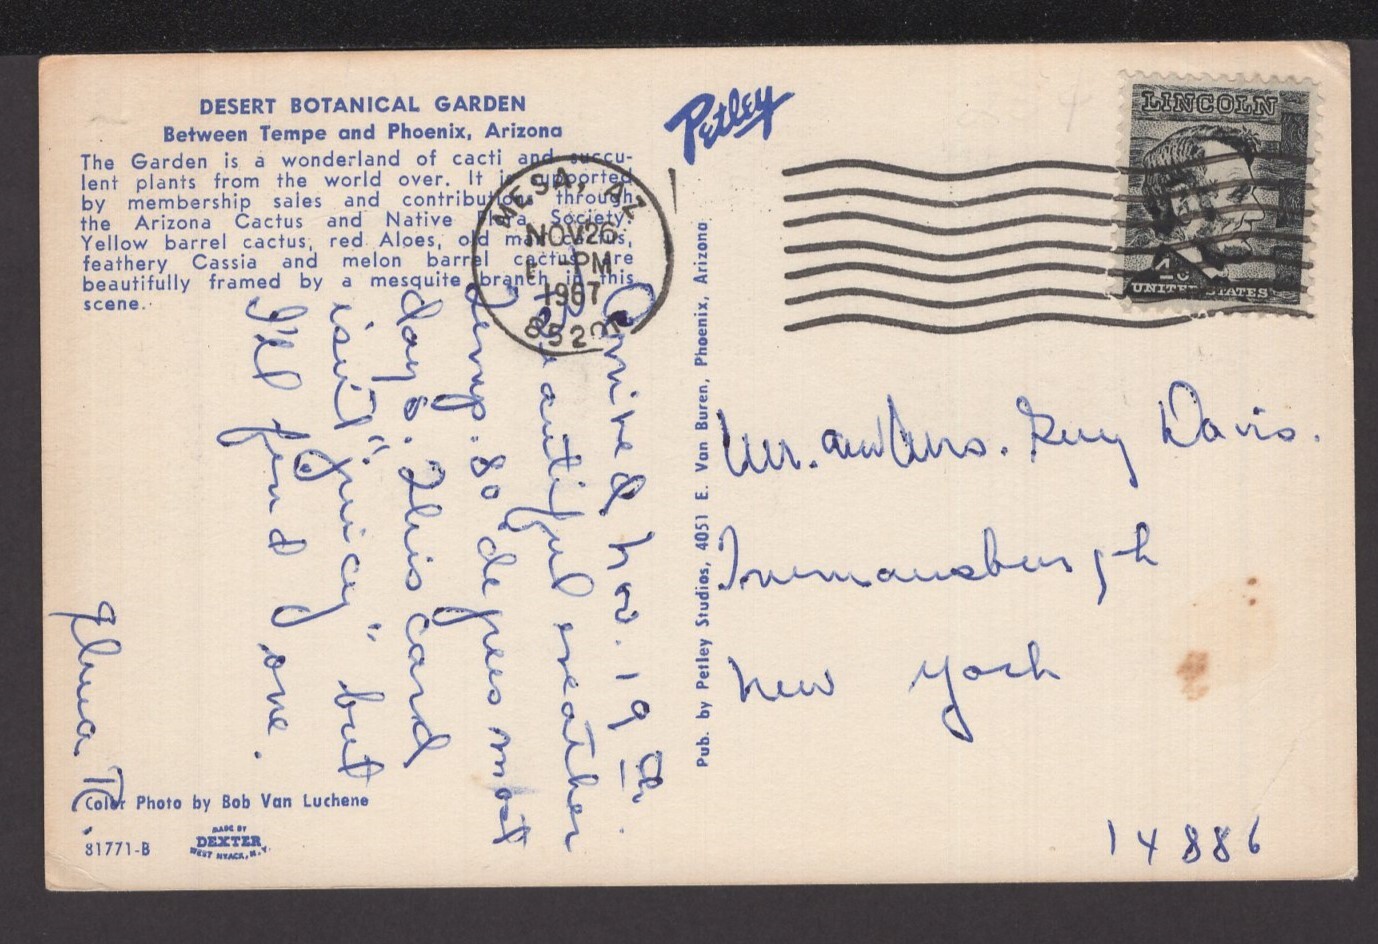 DESERT BOTANICAL GARDEN
Between Tempe and Phoenix, Arizona
The Garden is a wonderland of cacti and succu-
lent plants from the world over. It is supported
by membership sales and contributions through
the Arizona Cactus and Native Flora Society.
Yellow barrel cactus, red Aloes, old man cactus,
feathery Cassia and melon barrel cactus are
beautifully framed by a mesquite branch in this
scene.
Arrived Nov. 19th.
Beautiful weather
Temp. 80 degrees most
day's. This card
isn't "juicy" but
I'll find one.
Elma T.
Color Photo by Bob Van Luchene
81771-B
MADE BY
DEXTER
WEST NYACK, N.Y.
Petley
Pub. by Petley Studios, 4051 E. Van Buren, Phoenix, Arizona
MESA, AZ
NOV 26
PM
1967
LINCOLN
4c
UNITED STATES
Mr. and Mrs. Guy Davis.
Trumansburgh
New York
14886